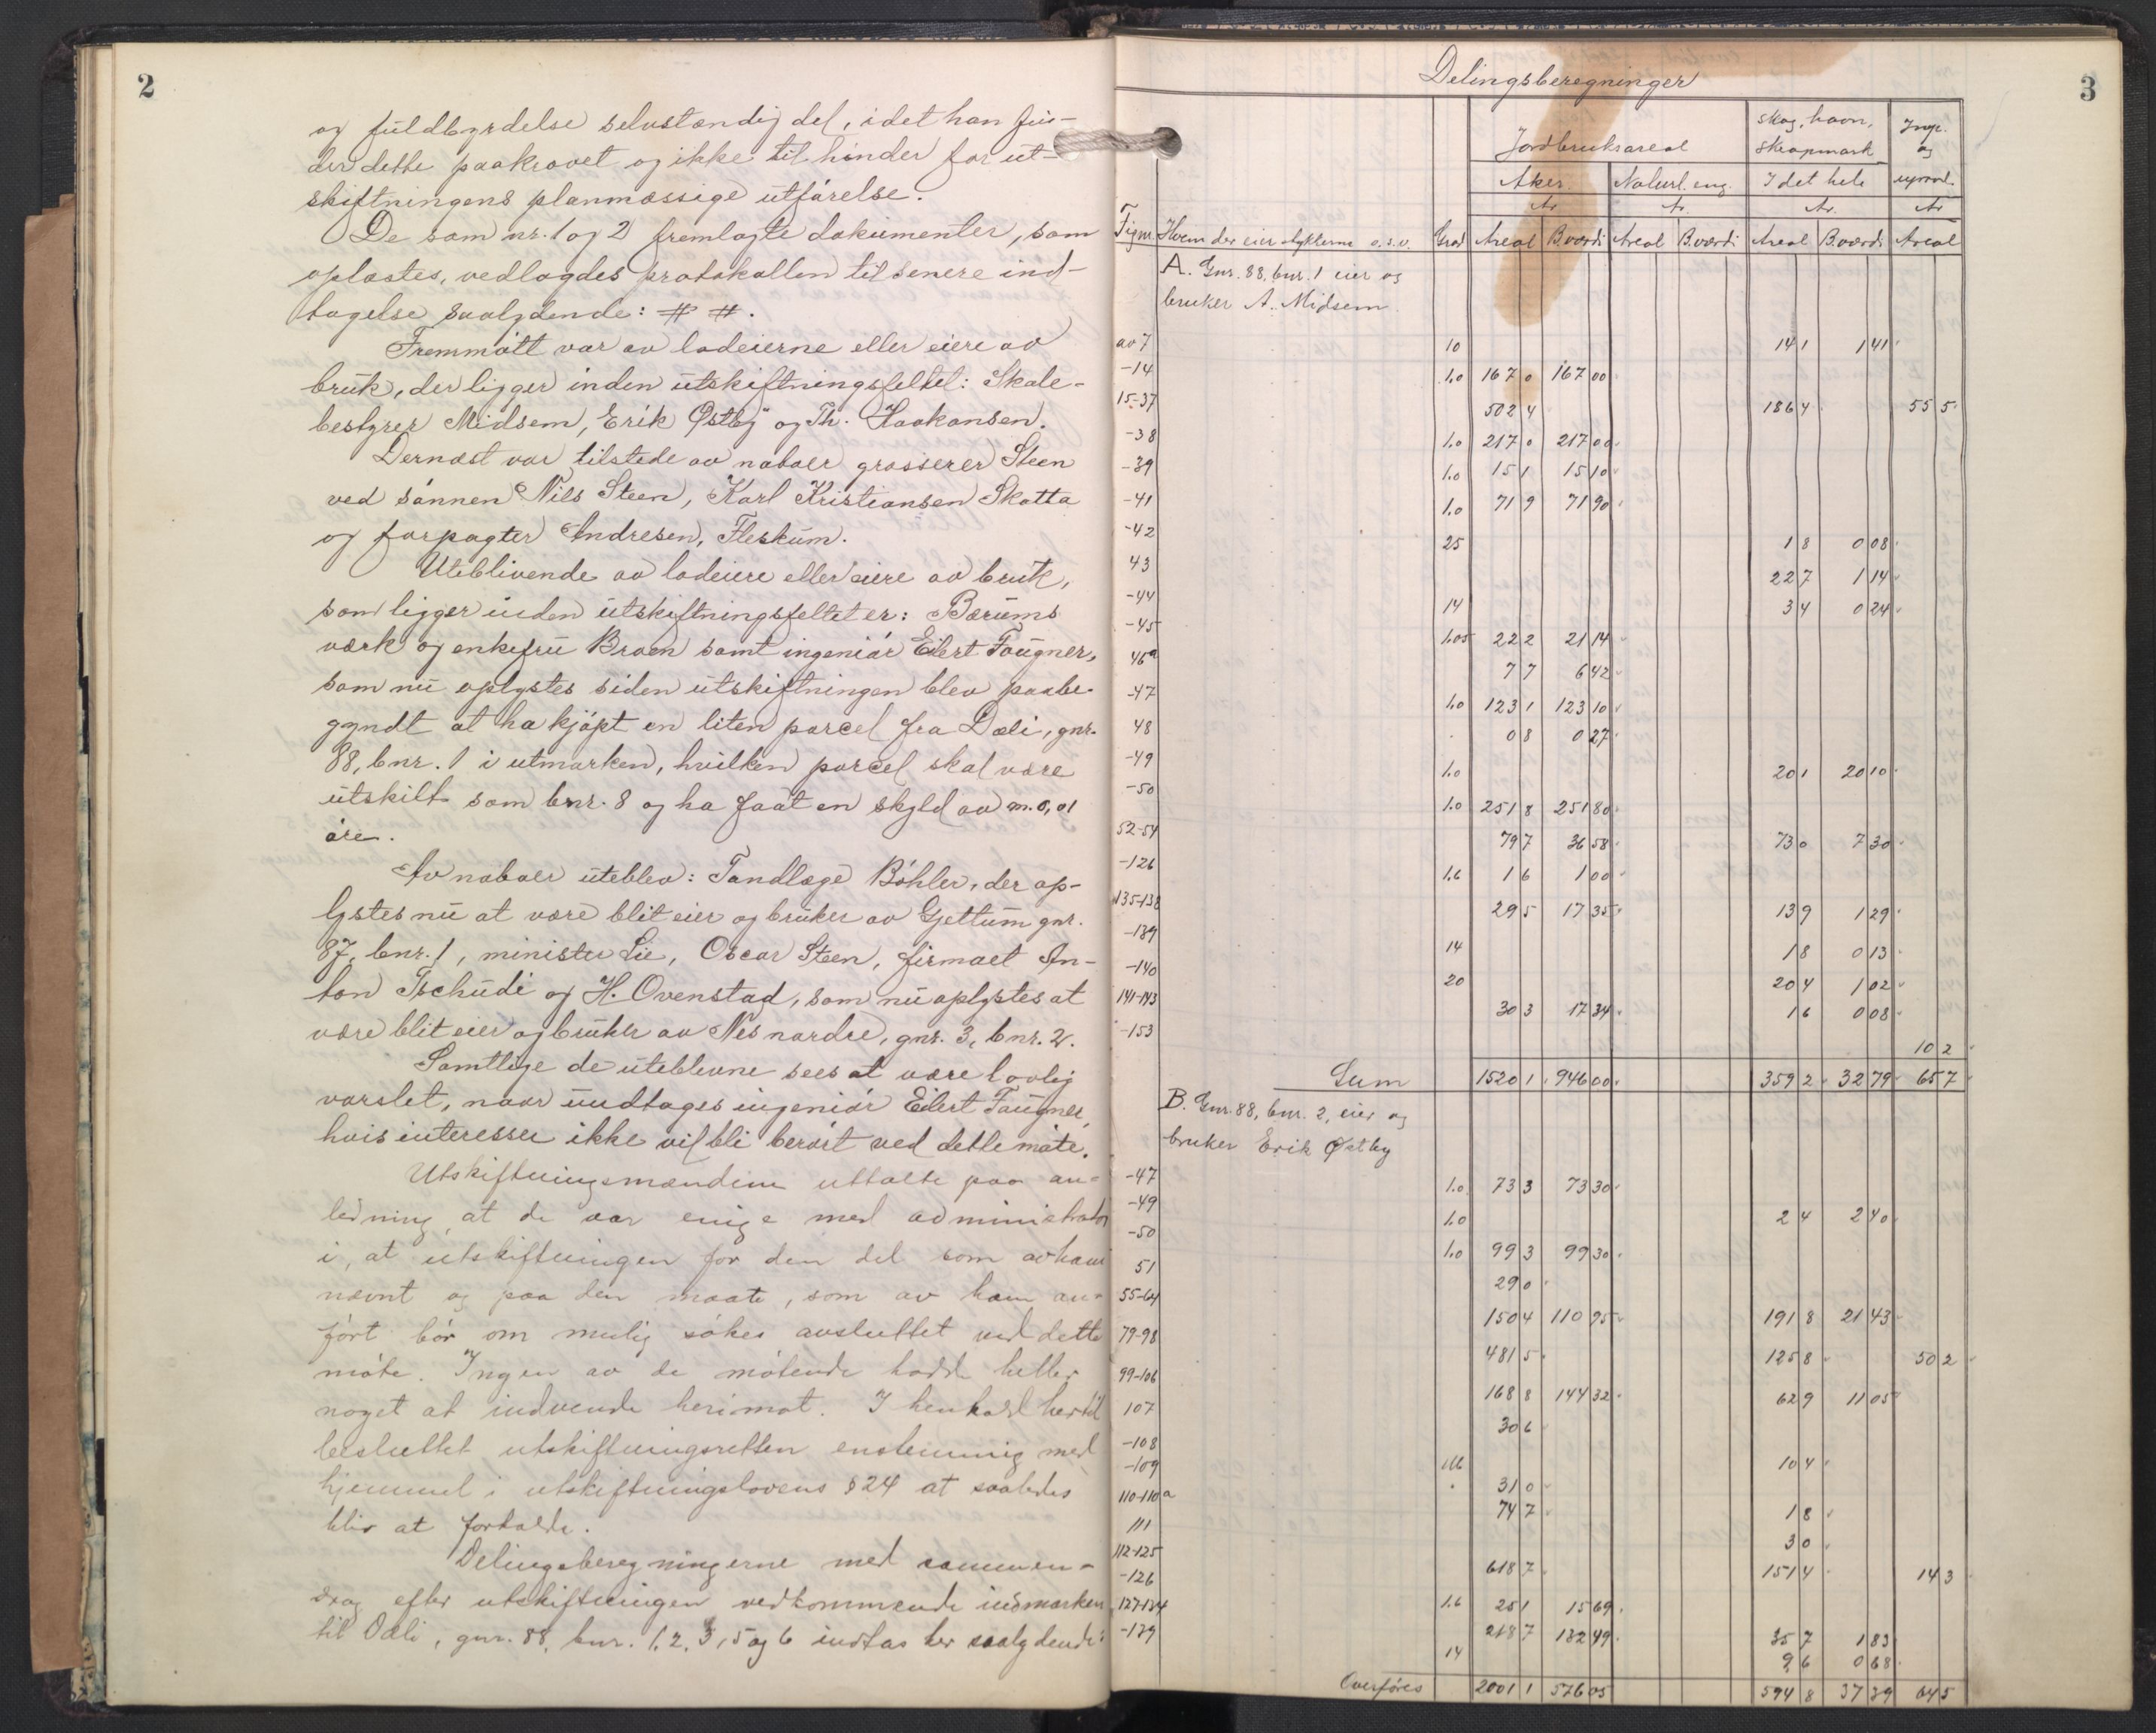 2
og fuldbyrdelse selvstændig del, idet han fin-
der dette paakrævet og ikke til hinder for ut-
skiftningens planmæssige utførelse.
De som nr. 1 og 2 fremlagte dokumenter, som
oplæstes, vedlagdes protokollen til senere ind-
tagelse saalydende: # #.
Fremmøtt var av lodeierne eller eiere av
bruk, der ligger inden utskiftningsfeltet: Skole-
bestyrer Midsem, Erik Østby og Th. Haakonsen.
Dernæst var tilstede av naboer grosserer Steen
ved sønnen Nils Steen, Karl Kristiansen Skotta
og forpagter Andresen, Fleskum.
Uteblivende av lodeiere eller eiere av bruk,
som ligger inden utskiftningsfeltet er: Bærums
værk og enkefru Braen samt ingeniør Eilert Fougner,
som nu oplystes siden utskiftningen blev paabe-
gyndt at ha kjøpt en liten parcel fra Dæli, gnr.
88, bnr. 1 i utmarken, hvilken parcel skal være
utskilt som bnr. 8 og ha faat en skyld av m. 0,01
øre.
Av naboer uteblev: Tandlæge Bøhler, der op-
lystes nu at være blit eier og bruker av Gjettum gnr.
87, bnr. 1, minister Lie, Oscar Steen, firmaet An-
ton Tschudi og H. Ovenstad, som nu oplystes at
være blit eier og bruker av Nes nordre, gnr. 3, bnr. 2.
Samtlige de uteblevne sees at være lovlig
varslet, naar undtages ingeniør Eilert Fougner,
hvis interesser ikke vil bli berørt ved dette møte.
Utskiftningsmændene uttalte paa an-
ledning, at de var enige med administrator
i, at utskiftningen for den del som av ham
nævnt og paa den maate, som av ham an-
ført bør om mulig søkes avsluttet ved dette
møte. Ingen av de møtende hadde heller
noget at indvende herimot. I henhold hertil
besluttet utskiftningsretten enstemmig med
hjemmel i utskiftningslovens § 24 at saaledes
blir at forholde.
Delingsberegningerne med sammen-
drag efter utskiftningen vedkommende indmarken
til Dæli, gnr. 88, bnr. 1, 2, 3, 5 og 6 indtas her saalydende:
3
Delingsberegninger
Jordbruksareal skog, havn, skrapmark Impe. og
Aker. Naturl. eng. I det hele uprod.
Ar Ar. Ar. Ar
Figur. Hvem der eier stykkerne o.s.v. Grad Areal B.værdi Areal B.værdi Areal B.værdi Areal
A. Gnr. 88, bnr. 1 eier og
bruker A. Midsem
av 7 10 14 1 1 41
-14 1.0 167 0 167 00
15-37 502 4 186 4 55 5
-38 1.0 217 0 217 00
-39 1.0 15 1 15 10
-41 1.0 71 9 71 90
-42 25 1 8 0 08
43 22 7 1 14
-44 14 3 4 0 24
-45 1.05 22 2 21 14
46a 7 7 6 42
-47 1.0 123 1 123 10
48 0 8 0 27
-49 1.0 20 1 20 10
-50 1.0 251 8 251 80
52-54 79 7 36 58 73 0 7 30
-126 1.6 1 6 1 00
135-138 29 5 17 35 13 9 1 29
-139 14 1 8 0 13
-140 20 20 4 1 02
141-143 30 3 17 34 1 6 0 08
-153 10 2
Sum 1520 1 946 00 359 2 32 79 65 7
B. Gnr. 88, bnr. 2, eier og
bruker Erik Østby
-47 1.0 73 3 73 30
-49 1.0 2 4 2 40
-50 1.0 99 3 99 30
51 29 0
55-64 150 4 110 95 191 8 21 43
79-98 481 5 125 8 50 2
99-106 168 8 144 32 62 9 11 05
107 30 6
-108 10 4
-109 31 0
110-110a 74 7 1 8
111 3 0
112-125 618 7 151 4 14 3
-126 1.6 25 1 15 69
127-134 218 7 132 49 35 7 1 83
-139 14 9 6 0 68
Overføres 2001 1 576 05 594 8 37 39 64 5